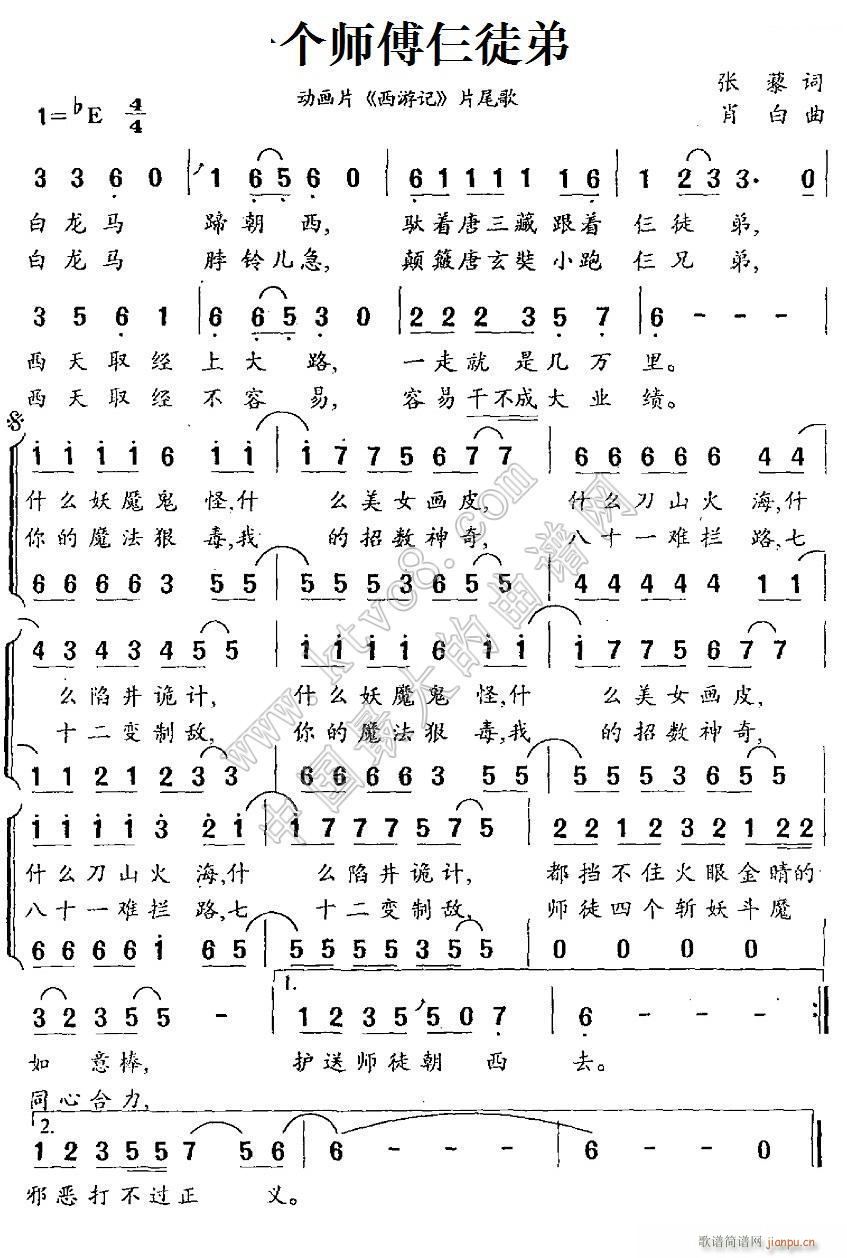 一个师傅仨徒弟
动画片《西游记》片尾歌
张藜词
1=♭E 4/4
肖白曲
3 3 6 0 1 6 5 6 0 6 1 1 1 1 1 6 1 2 3 3 3· 0
白龙马 蹄朝西, 驮着唐三藏跟着仨徒弟,
白龙马 脖铃儿急, 颠簸唐玄奘小跑仨兄弟,
3 5 6 1 6 6 5 3 0 2 2 2 3 5 7 6 - - -
西天取经上大路, 一走就是几万里。
西天取经不容易, 容易干不成大业绩。
1 1 1 1 6 1 1 1 7 7 5 6 7 7 6 6 6 6 6 4 4
什么妖魔鬼怪,什么美女画皮, 什么刀山火海,什
你的魔法狠毒,我的招数神奇, 八十一难拦路,七
6 6 6 6 3 5 5 5 5 5 3 6 5 5 4 4 4 4 4 1 1
4 3 4 3 4 5 5 1 1 1 1 6 1 1 1 7 7 5 6 7 7
么陷井诡计, 什么妖魔鬼怪,什么美女画皮,
十二变制敌, 你的魔法狠毒,我的招数神奇,
1 1 2 1 2 3 3 6 6 6 6 3 5 5 5 5 5 3 6 5 5
1 1 1 1 3 2 1 1 7 7 7 5 7 5 2 2 1 2 3 2 1 2 2
什么刀山火海,什么陷井诡计, 都挡不住火眼金晴的
八十一难拦路,七十二变制敌, 师徒四个斩妖斗魔
6 6 6 6 1 6 5 5 5 5 5 3 5 5 0 0 0 0
1.
3 2 3 5 5 - 1 2 3 5 5 0 7 6 - - -
如意棒, 护送师徒朝西去。
同心合力,
2.
1 2 3 5 5 7 5 6 6 - - - 6 - - 0
邪恶打不过正义。
www.ktvc8.com
中国最大的曲谱网
歌谱简谱网 jianpu.cn